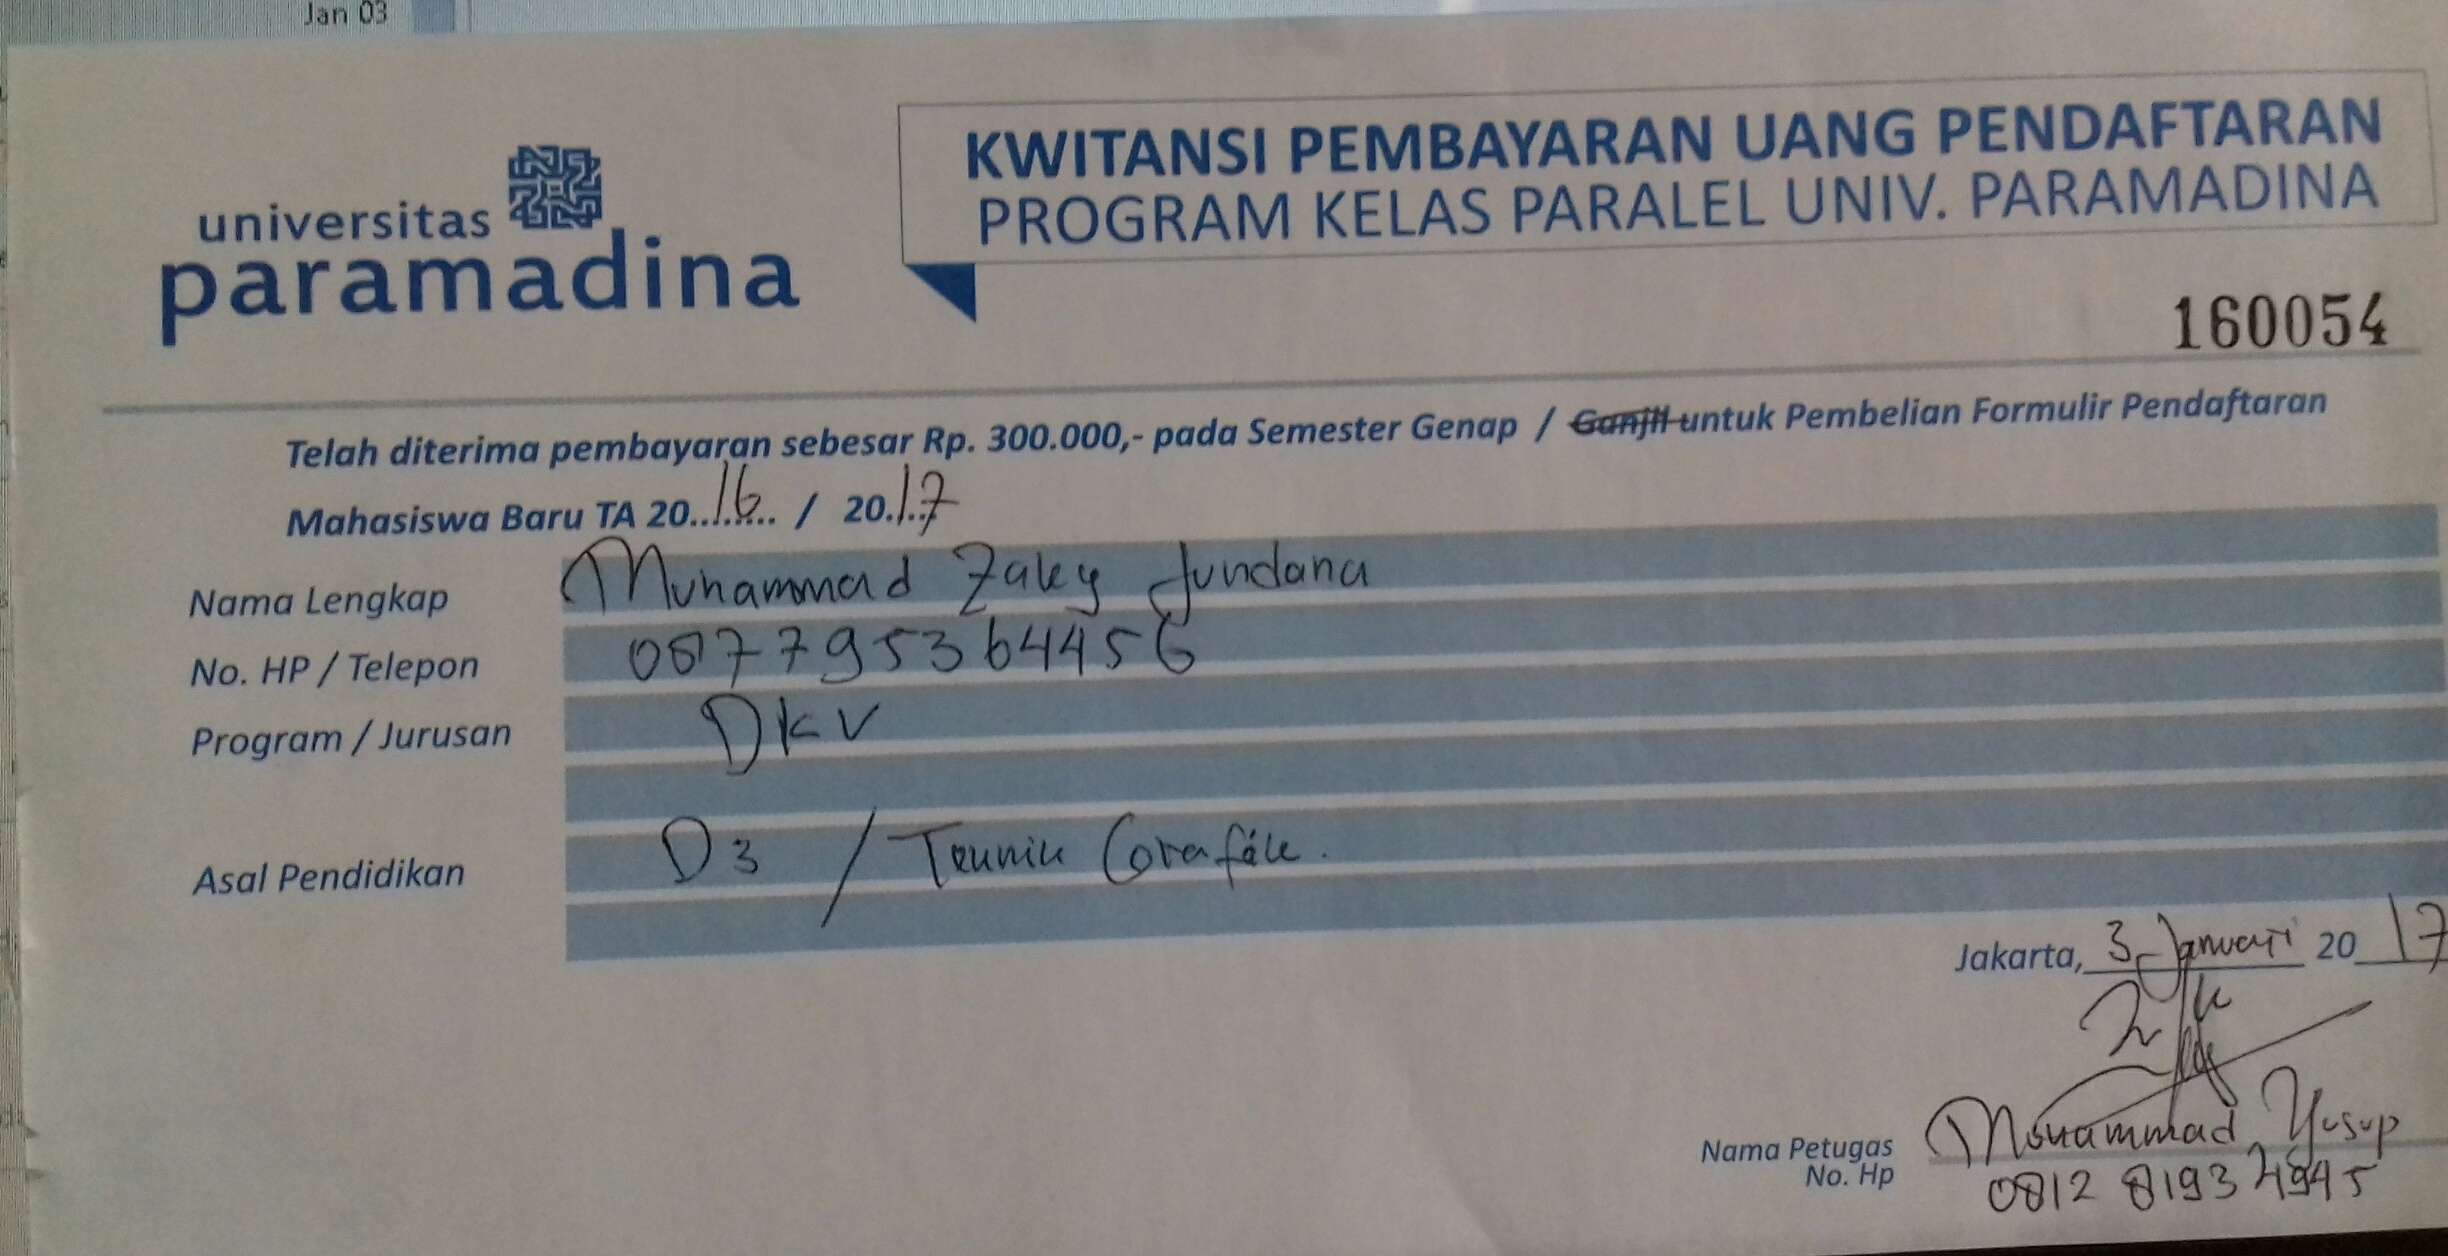 Jan 03
universitas
paramadina
KWITANSI PEMBAYARAN UANG PENDAFTARAN
PROGRAM KELAS PARALEL UNIV. PARAMADINA
160054
Telah diterima pembayaran sebesar Rp. 300.000,- pada Semester Genap / Ganjil untuk Pembelian Formulir Pendaftaran
Mahasiswa Baru TA 20..16.. / 20.17
Nama Lengkap Muhammad Zaky Jundana
No. HP / Telepon 087795364456
Program / Jurusan DKV
Asal Pendidikan D3 / Teknik Grafik.
Jakarta, 3 Januari 20 17
Nama Petugas Mohammad Yusup
No. Hp 0812 8193 4945